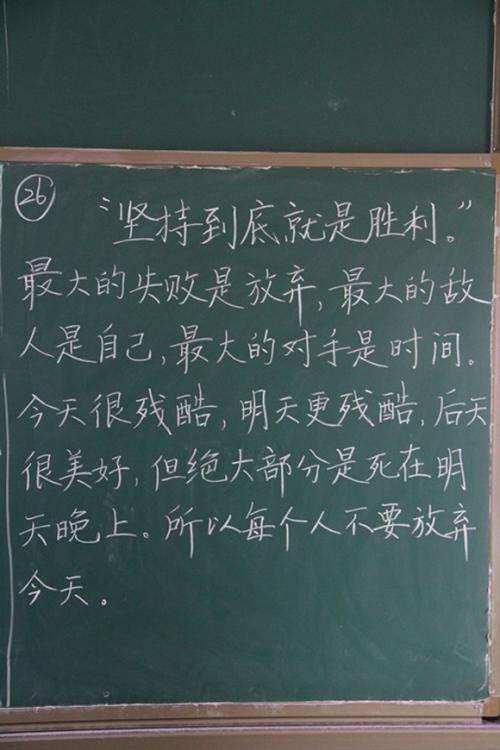 26
“坚持到底就是胜利。”
最大的失败是放弃,最大的敌
人是自己,最大的对手是时间。
今天很残酷,明天更残酷,后天
很美好,但绝大部分是死在明
天晚上。所以每个人不要放弃
今天。